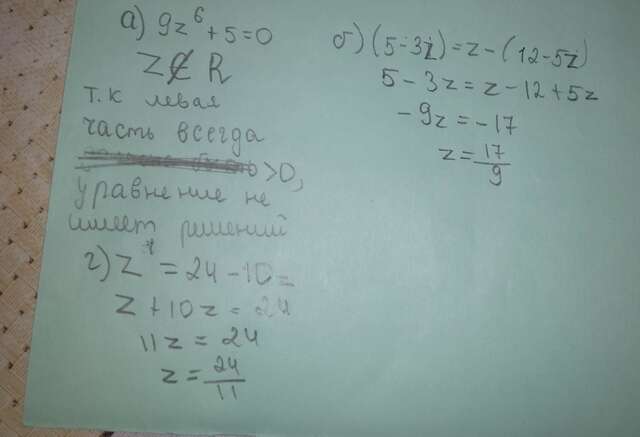 а) 9z⁶ + 5 = 0
z ∉ R
т.к левая
часть всегда
>0,
уравнение не
имеет решений
г) z = 24 - 10z
z + 10z = 24
11z = 24
z = 24/11
б) (5-3z) = z - (12-5z)
5 - 3z = z - 12 + 5z
-9z = -17
z = 17/9